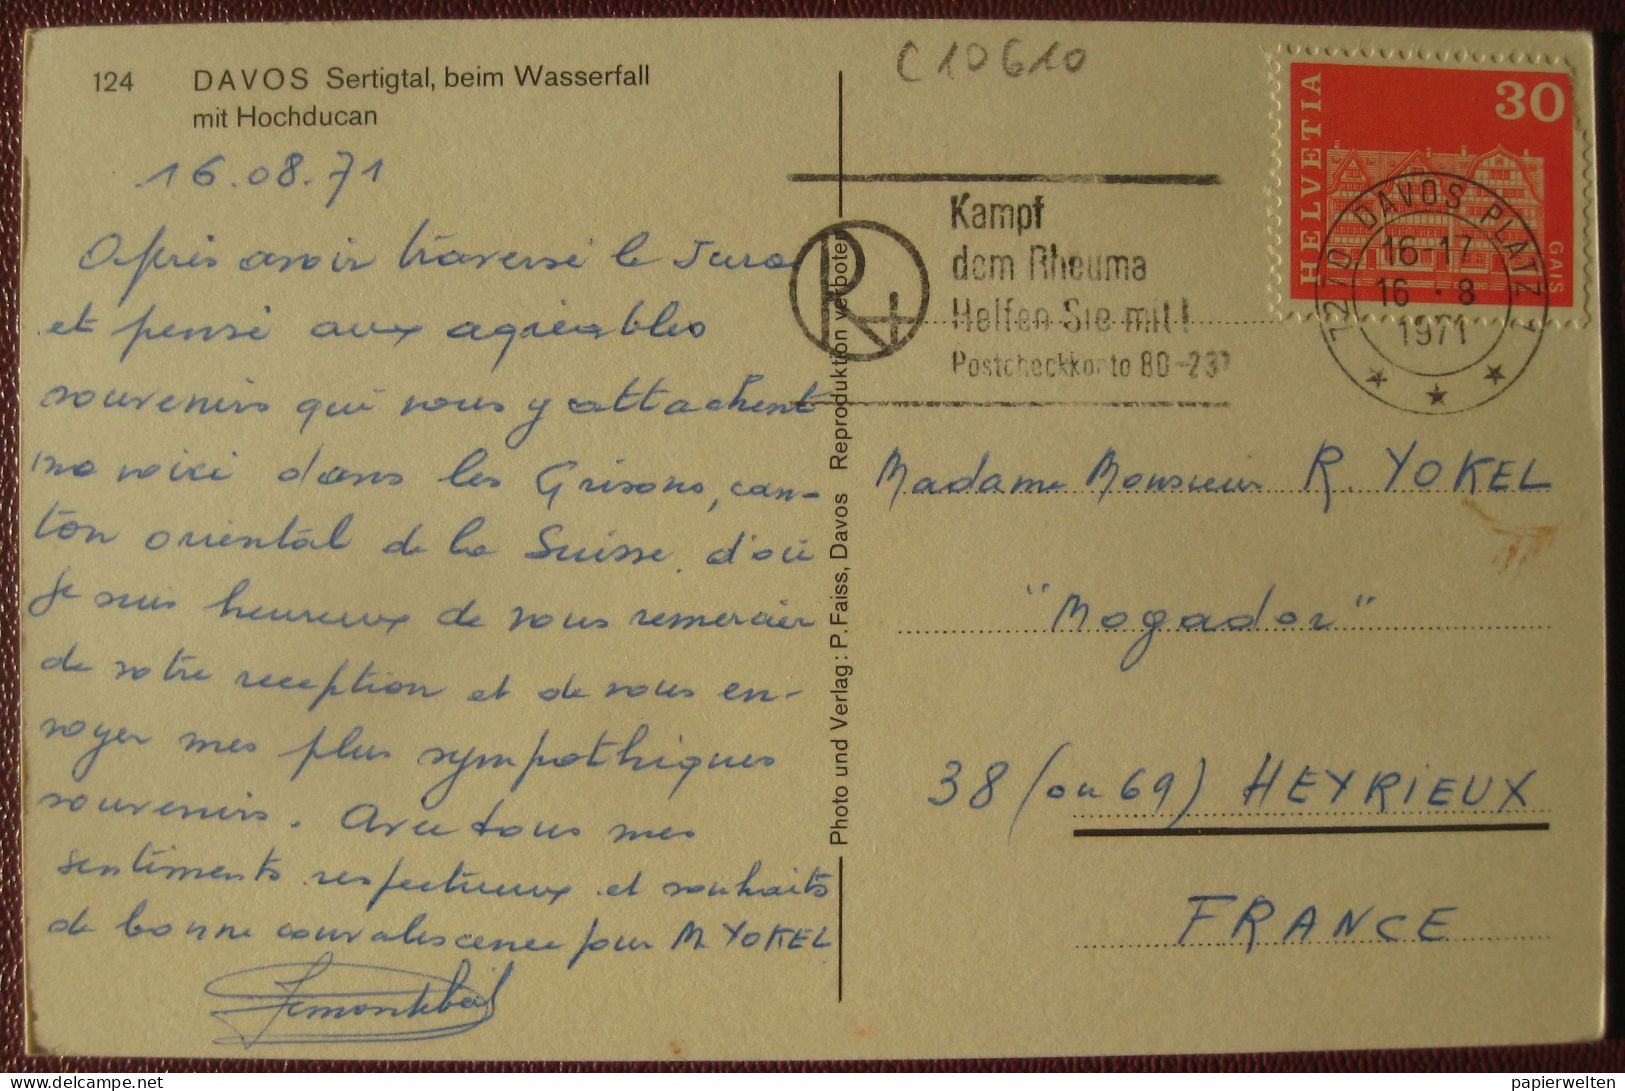 124 DAVOS Sertigtal, beim Wasserfall
mit Hochducan
16.08.71
Après avoir traversé le Jura
et pensé aux agréables
souvenirs qui nous y attachent
me voici dans les Grisons, can-
ton oriental de la Suisse, d'où
je suis heureux de vous remercier
de votre reception et de vous en-
voyer mes plus sympathiques
souvenirs. Avec tous mes
sentiments respectueux et souhaits
de bonne convalescence pour M YOKEL
Photo und Verlag: P. Faiss, Davos Reproduktion verboten
C10610
R+
Kampf
dem Rheuma
Helfen Sie mit!
Postcheckkonto 80-237
HELVETIA
30
GAIS
7270 DAVOS PLATZ 1
16-17
16.-8
1971
Madame Monsieur R. YOKEL
"Mogador"
38 (ou 69) HEYRIEUX
FRANCE
delcampe.net
papierwelten